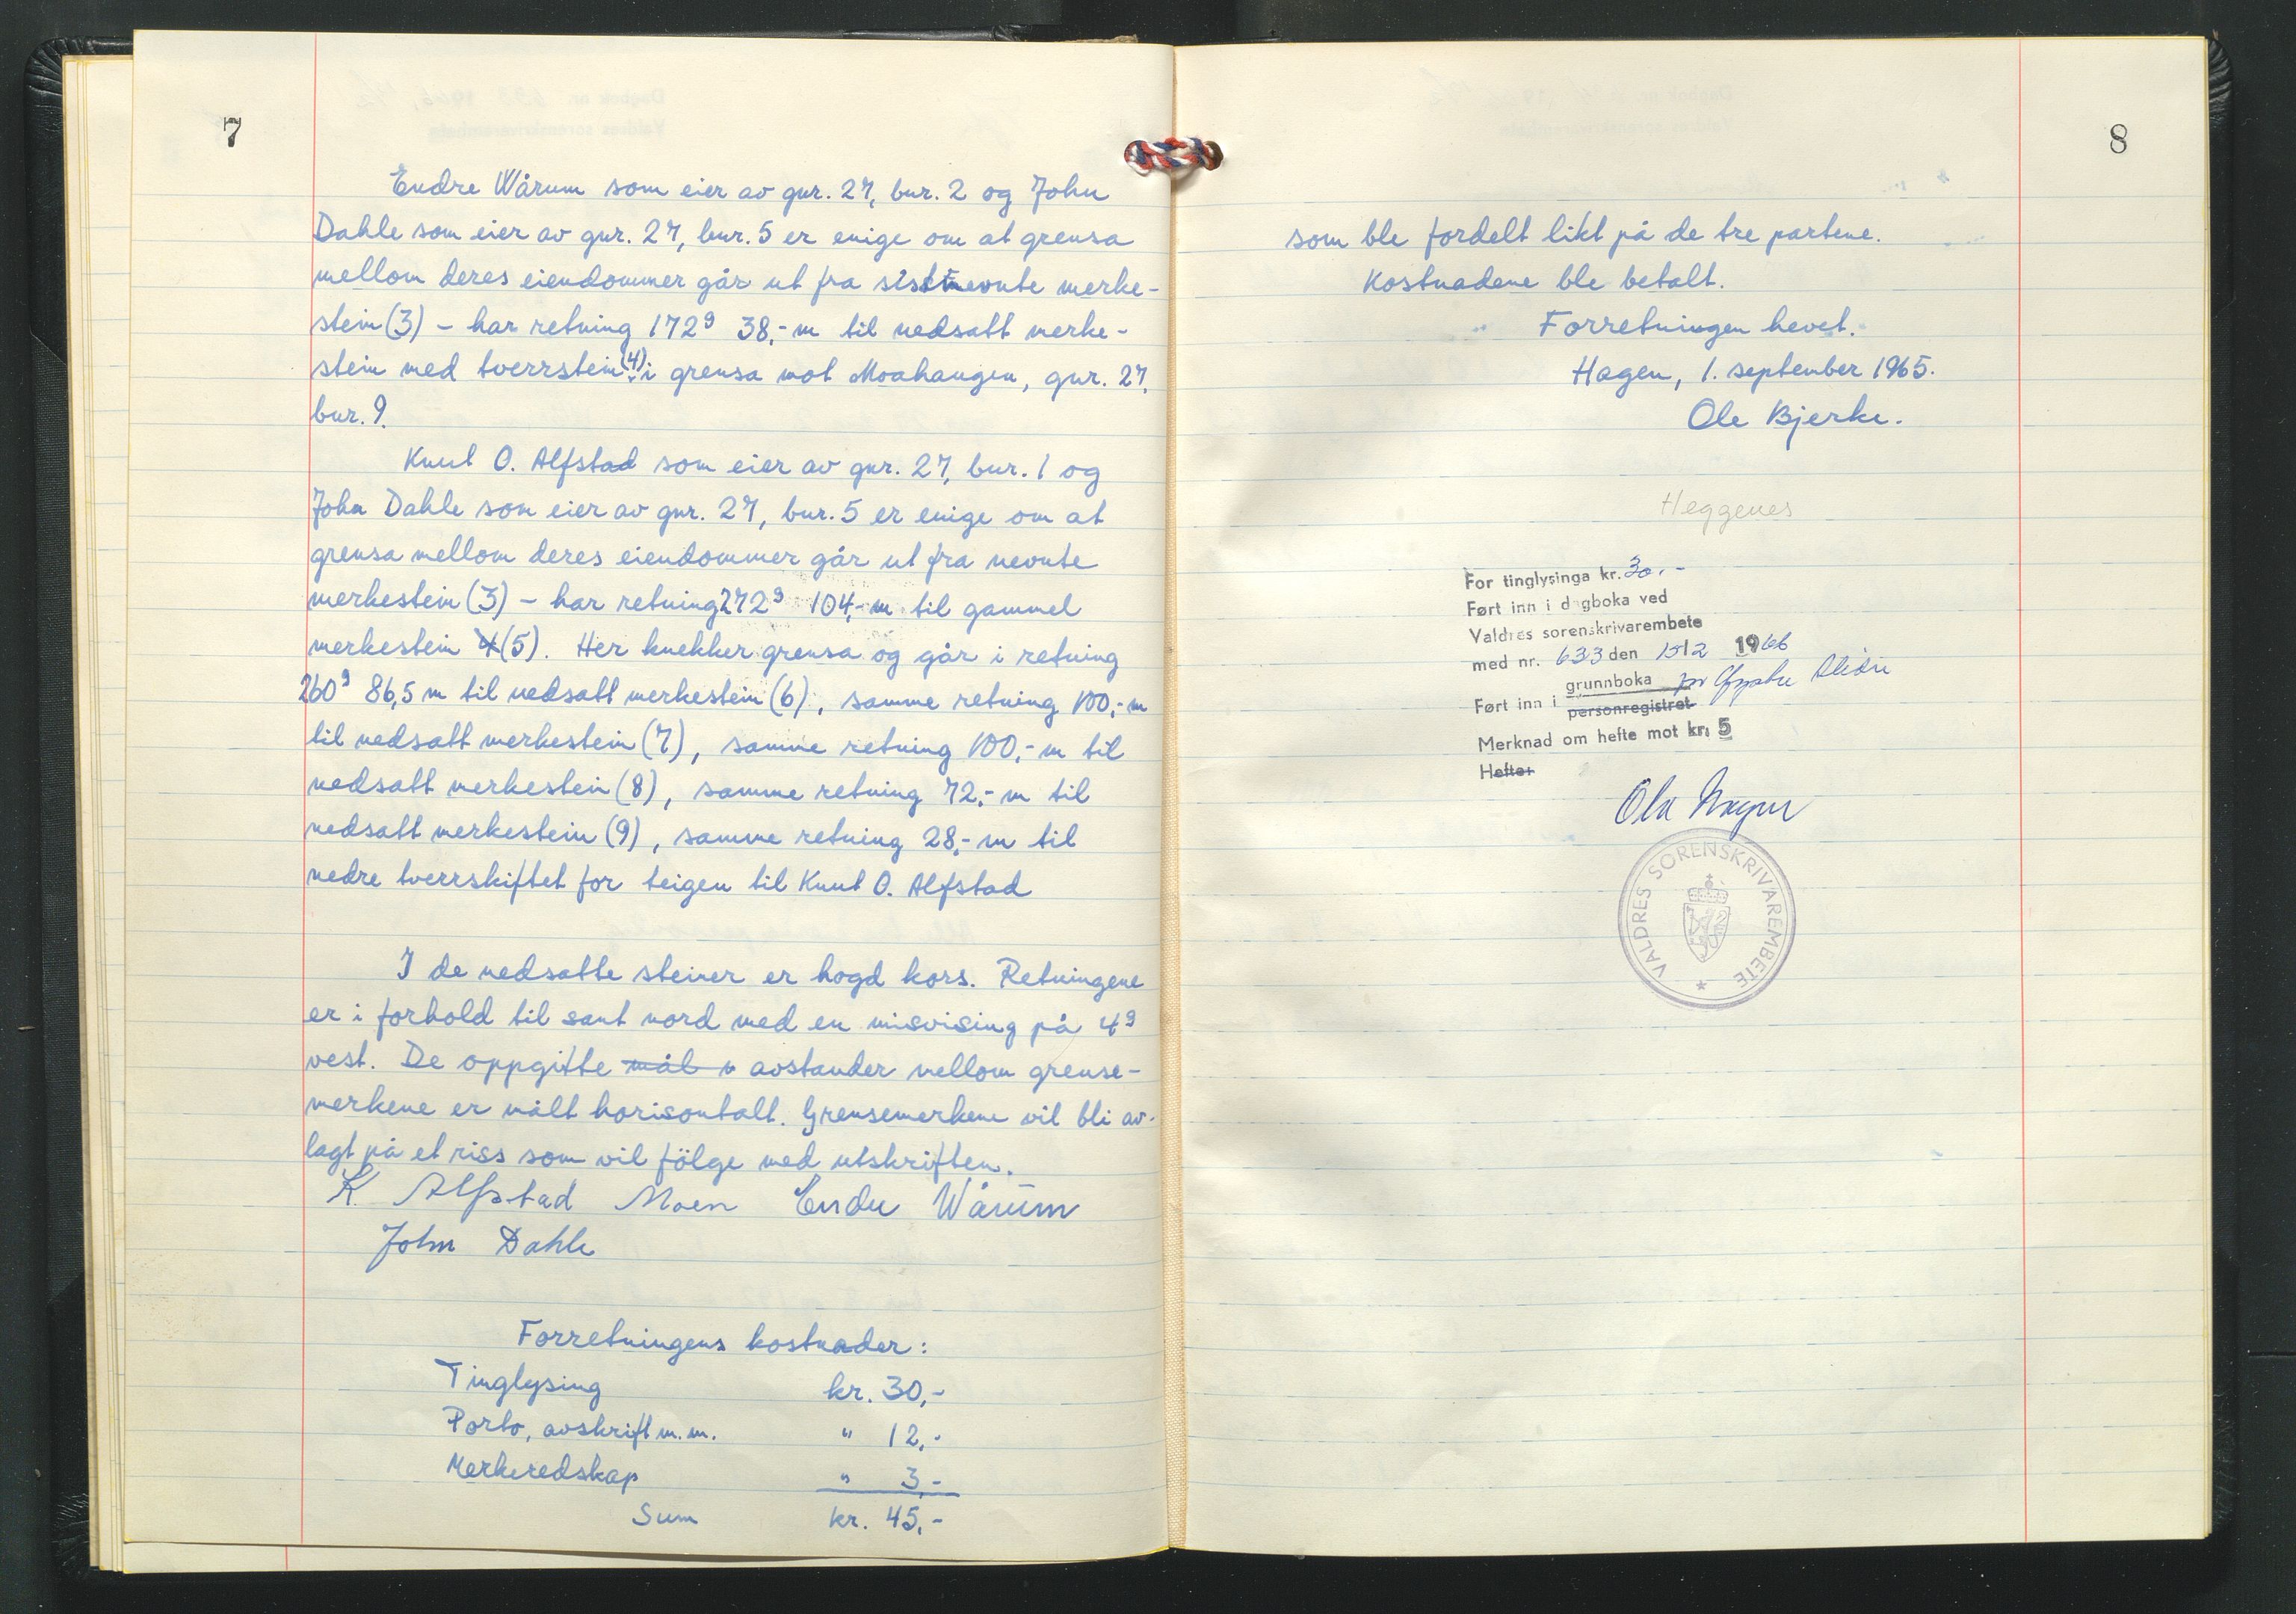 7
Endre Wårum som eier av gnr. 27, bnr. 2 og John
Dahle som eier av gnr. 27, bnr. 5 er enige om at grensa
mellom deres eiendommer går ut fra sistnevnte merke-
stein (3) – har retning 172g 38,- m til nedsatt merke-
stein med tverrstein (4) i grensa mot Moahaugen, gnr. 27,
bnr. 9.
Knut O. Alfstad som eier av gnr. 27, bnr. 1 og
John Dahle som eier av gnr. 27, bnr. 5 er enige om at
grensa mellom deres eiendommer går ut fra nevnte
merkestein (3) – har retning 272g 104,- m til gammel
merkestein 4 (5). Her knekker grensa og går i retning
260g 86,5 m til nedsatt merkestein (6), samme retning 100,- m
til nedsatt merkestein (7), samme retning 100,- m til
nedsatt merkestein (8), samme retning 72,- m til
nedsatt merkestein (9), samme retning 28,- m til
nedre tverrskiftet for teigen til Knut O. Alfstad
I de nedsatte steiner er hogd kors. Retningene
er i forhold til sant nord med en misvising på 4g
vest. De oppgitte mål v avstander mellom grense-
merkene er målt horisontalt. Grensemerkene vil bli av-
lagt på et riss som vil fölge med utskriften.
K. Alfstad Moen Endre Wårum
John Dahle
Forretningens kostnader:
Tinglysing kr. 30,-
Porto, avskrift m.m. " 12,-
Merkeredskap " 3,-
Sum kr. 45,-
8
som ble fordelt likt på de tre partene.
Kostnadene ble betalt.
Forretningen hevet.
Hagen, 1. september 1965.
Ole Bjerke.
Heggenes
For tinglysinga kr. 30.-
Ført inn i dagboka ved
Valdres sorenskrivarembete
med nr. 633 den 15/2 1966
Ført inn i grunnboka
personregistret
Merknad om hefte mot kr. 5
Hefter
Ola
VALDRES SORENSKRIVAREMBETE